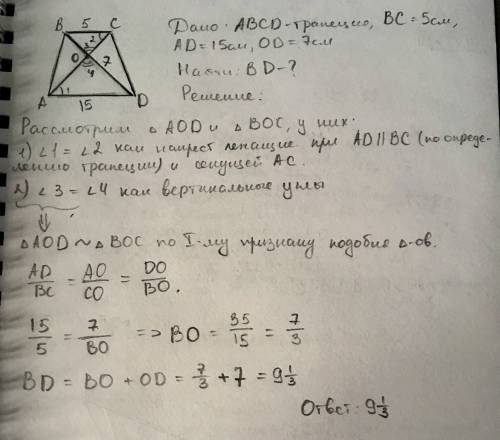 B 5 C
Дано: ABCD-трапеция, BC = 5см,
AD = 15см, OD = 7см
Найти: BD-?
Решение:
2
3
O 7
4
1
A 15 D
Рассмотрим △AOD и △BOC, у них:
1) ∠1 = ∠2 как накрест лежащие при AD∥BC (по опреде-
лению трапеции) и секущей AC.
2) ∠3 = ∠4 как вертикальные углы
⇓
△AOD ~ △BOC по I-му признаку подобия △-ов.
AD/BC = AO/CO = DO/BO.
15/5 = 7/BO => BO = 35/15 = 7/3
BD = BO + OD = 7/3 + 7 = 9 1/3
Ответ: 9 1/3